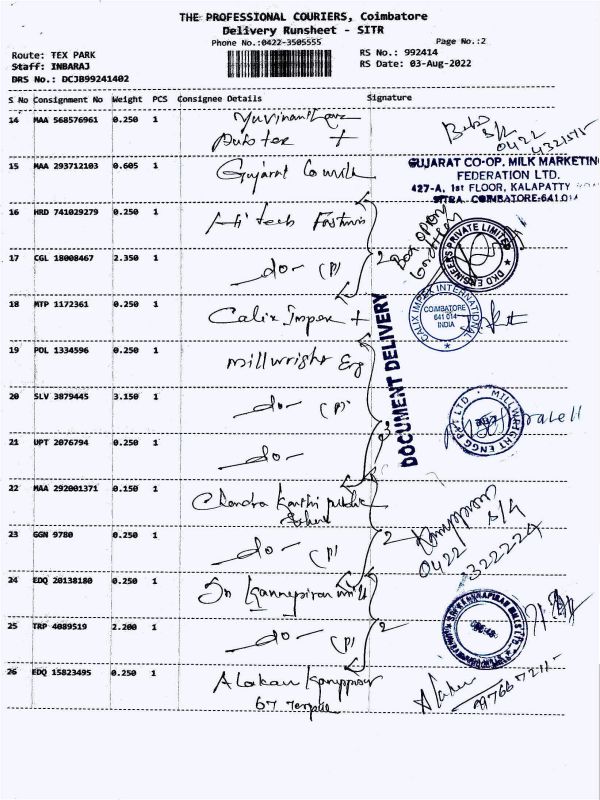 THE PROFESSIONAL COURIERS, Coimbatore
Delivery Runsheet - SITR
Phone No.:0422-3505555 Page No.:2
Route: TEX PARK RS No.: 992414
Staff: INBARAJ RS Date: 03-Aug-2022
DRS No.: DCJB99241402
S No Consignment No Weight PCS Consignee Details Signature
14 MAA 568576961 0.250 1
15 MAA 293712103 0.605 1 Gujarat Co milk
GUJARAT CO-OP. MILK MARKETING
FEDERATION LTD.
427-A, 1st FLOOR, KALAPATTY
SITRA, COIMBATORE-641 014
16 HRD 741029279 0.250 1 Hi tech
17 CGL 18008467 2.350 1 -do- (P) 2
DKD ENGINEERS PRIVATE LIMITED
18 MTP 1172361 0.250 1 Calix Impex +
CALIX IMPEX INTERNATIONAL
COIMBATORE
641 014
INDIA
DOCUMENT DELIVERY
19 POL 1334596 0.250 1 Millwright Eng
20 SLV 3879445 3.150 1 -do- (P)
MILLWRIGHT ENGG PVT LTD
21 UPT 2076794 0.250 1 -do- 3
22 MAA 292001371 0.150 1 Chandra Kanthi public
School
23 GGN 9780 0.250 1 -do- (P) 2
0422
322224
24 EDQ 20138180 0.250 1 Sri Kannapiran mill
25 TRP 4089519 2.200 1 -do- (P) 2
26 EDQ 15823495 0.250 1